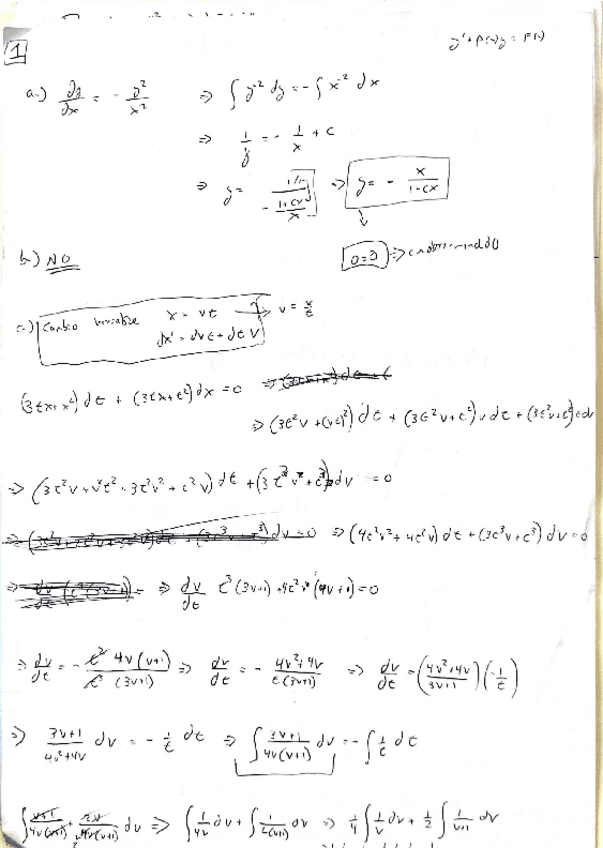 y' + P(x)y = F(x)
1
a.) dy/dx = - y²/x² => ∫ y⁻² dy = - ∫ x⁻² dx
=> 1/y = - 1/x + c
=> y = => y = - x/(1-cx)
0=0 =>
b.) NO
c.) Cambio variable x = vt -> v = x/t
dx' = dvt + dt v
(3tx+x²) dt + (3tx+t²) dx = 0
=> (3t²v + (vt)²) dt + (3t²v+t²) v dt + (3t²v+t²) t dv
=> (3t²v + v²t² + 3t²v² + t²v) dt + (3t³v + t³) dv = 0
=> (4t²v² + 4t²v) dt + (3t³v + t³) dv = 0
=> dv/dt t³(3v+1) + 4t²v (4v+1) = 0
=> dv/dt = - t² 4v(v+1) / t³ (3v+1) => dv/dt = - (4v²+4v) / t(3v+1) => dv/dt = ((4v²+4v)/(3v+1)) (-1/t)
=> (3v+1)/(4v²+4v) dv = - 1/t dt => ∫ (3v+1)/(4v(v+1)) dv = - ∫ 1/t dt
=> ∫ 1/4v dv + ∫ 1/2(v+1) dv => 1/4 ∫ 1/v dv + 1/2 ∫ 1/(v+1) dv